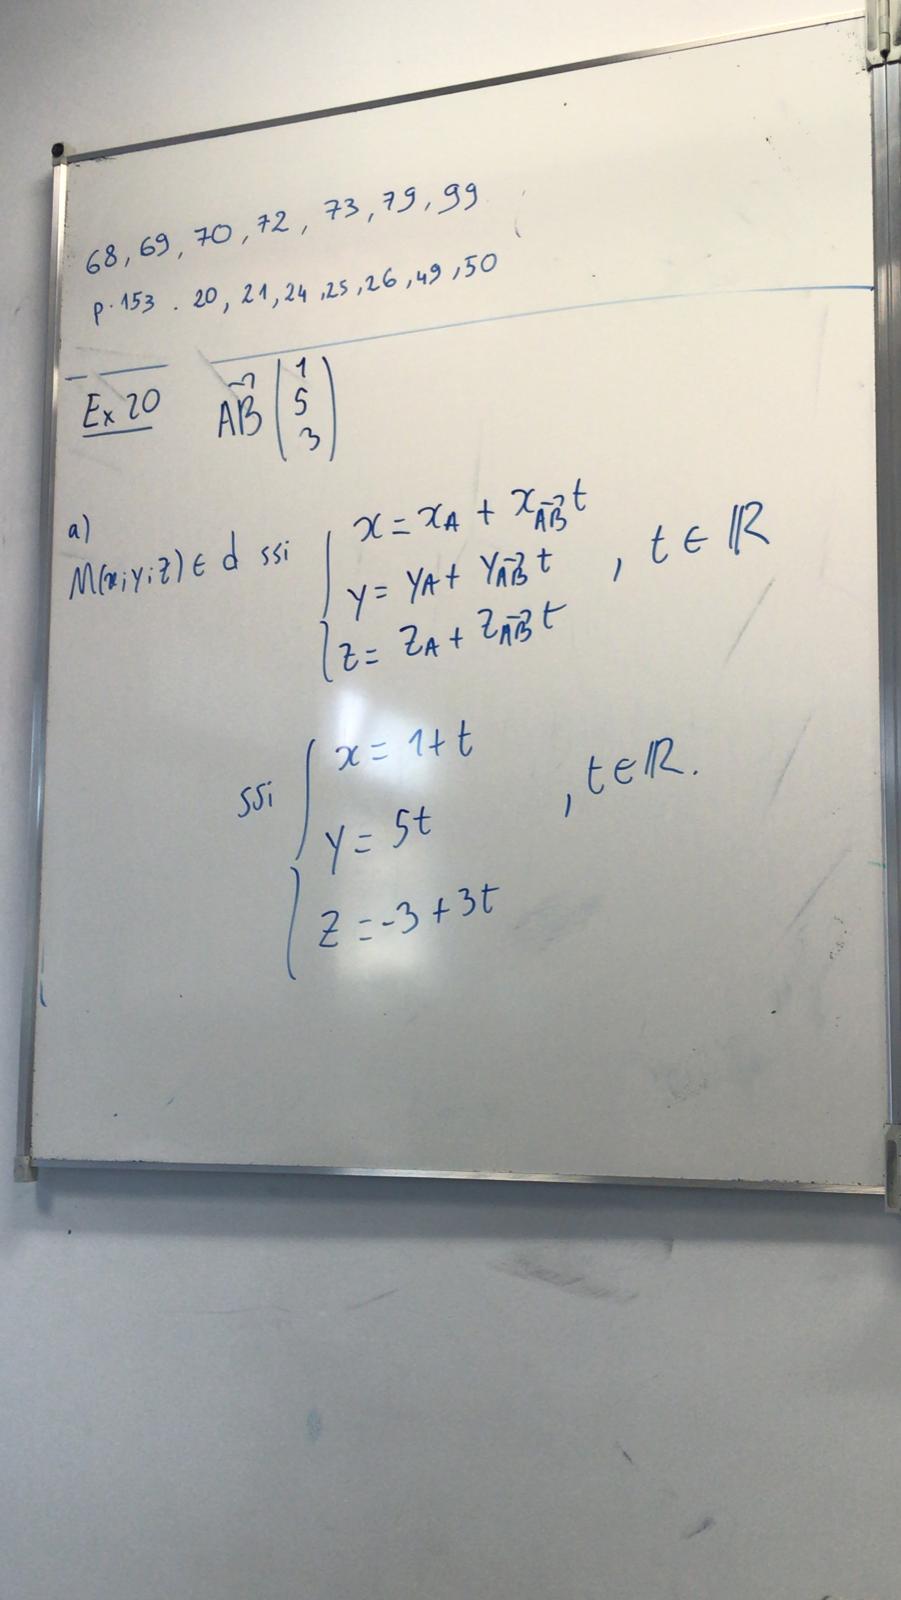 68, 69, 70, 72, 73, 79, 99
p. 153. 20, 21, 24, 25, 26, 49, 50
Ex 20 $\overrightarrow{AB} \begin{pmatrix} 1 \\ 5 \\ 3 \end{pmatrix}$
a)
M(x;y;z) ∈ d ssi $\begin{cases} x = x_A + x_{\overrightarrow{AB}} t \\ y = y_A + y_{\overrightarrow{AB}} t \\ z = z_A + z_{\overrightarrow{AB}} t \end{cases}$, t ∈ ℝ
ssi $\begin{cases} x = 1 + t \\ y = 5t \\ z = -3 + 3t \end{cases}$, t ∈ ℝ.